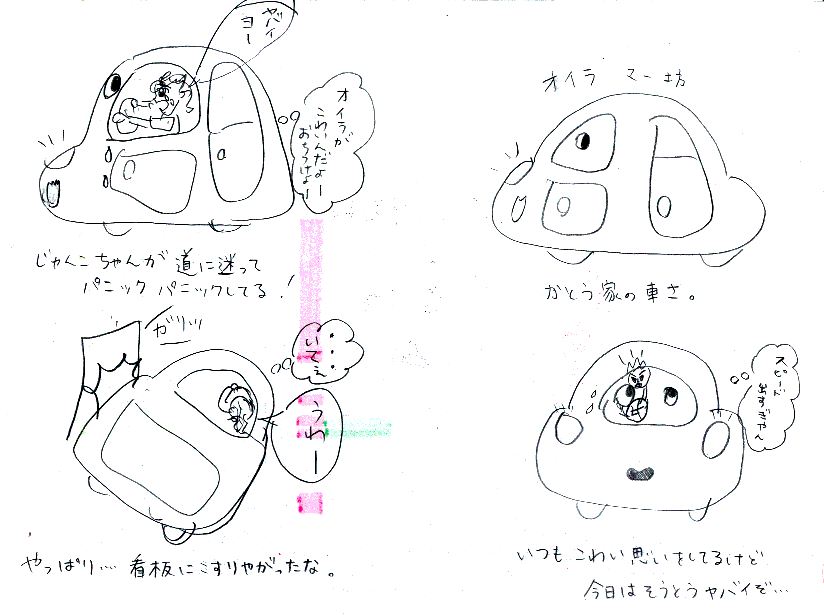 オイラ マー坊
かとう家の車さ。
スピード
出すぎやん
いつも こわい 思いをしてるけど
今日は そうとう ヤバイぞ…
ヤバイ
ヨー
オイラが
こわいんだよー
おちつけよー
じゃんこちゃんが 道に迷って
パニック パニックしてる!
ガリッッ
・・・
いてぇ
うわー
やっぱり… 看板にこすりやがったな。